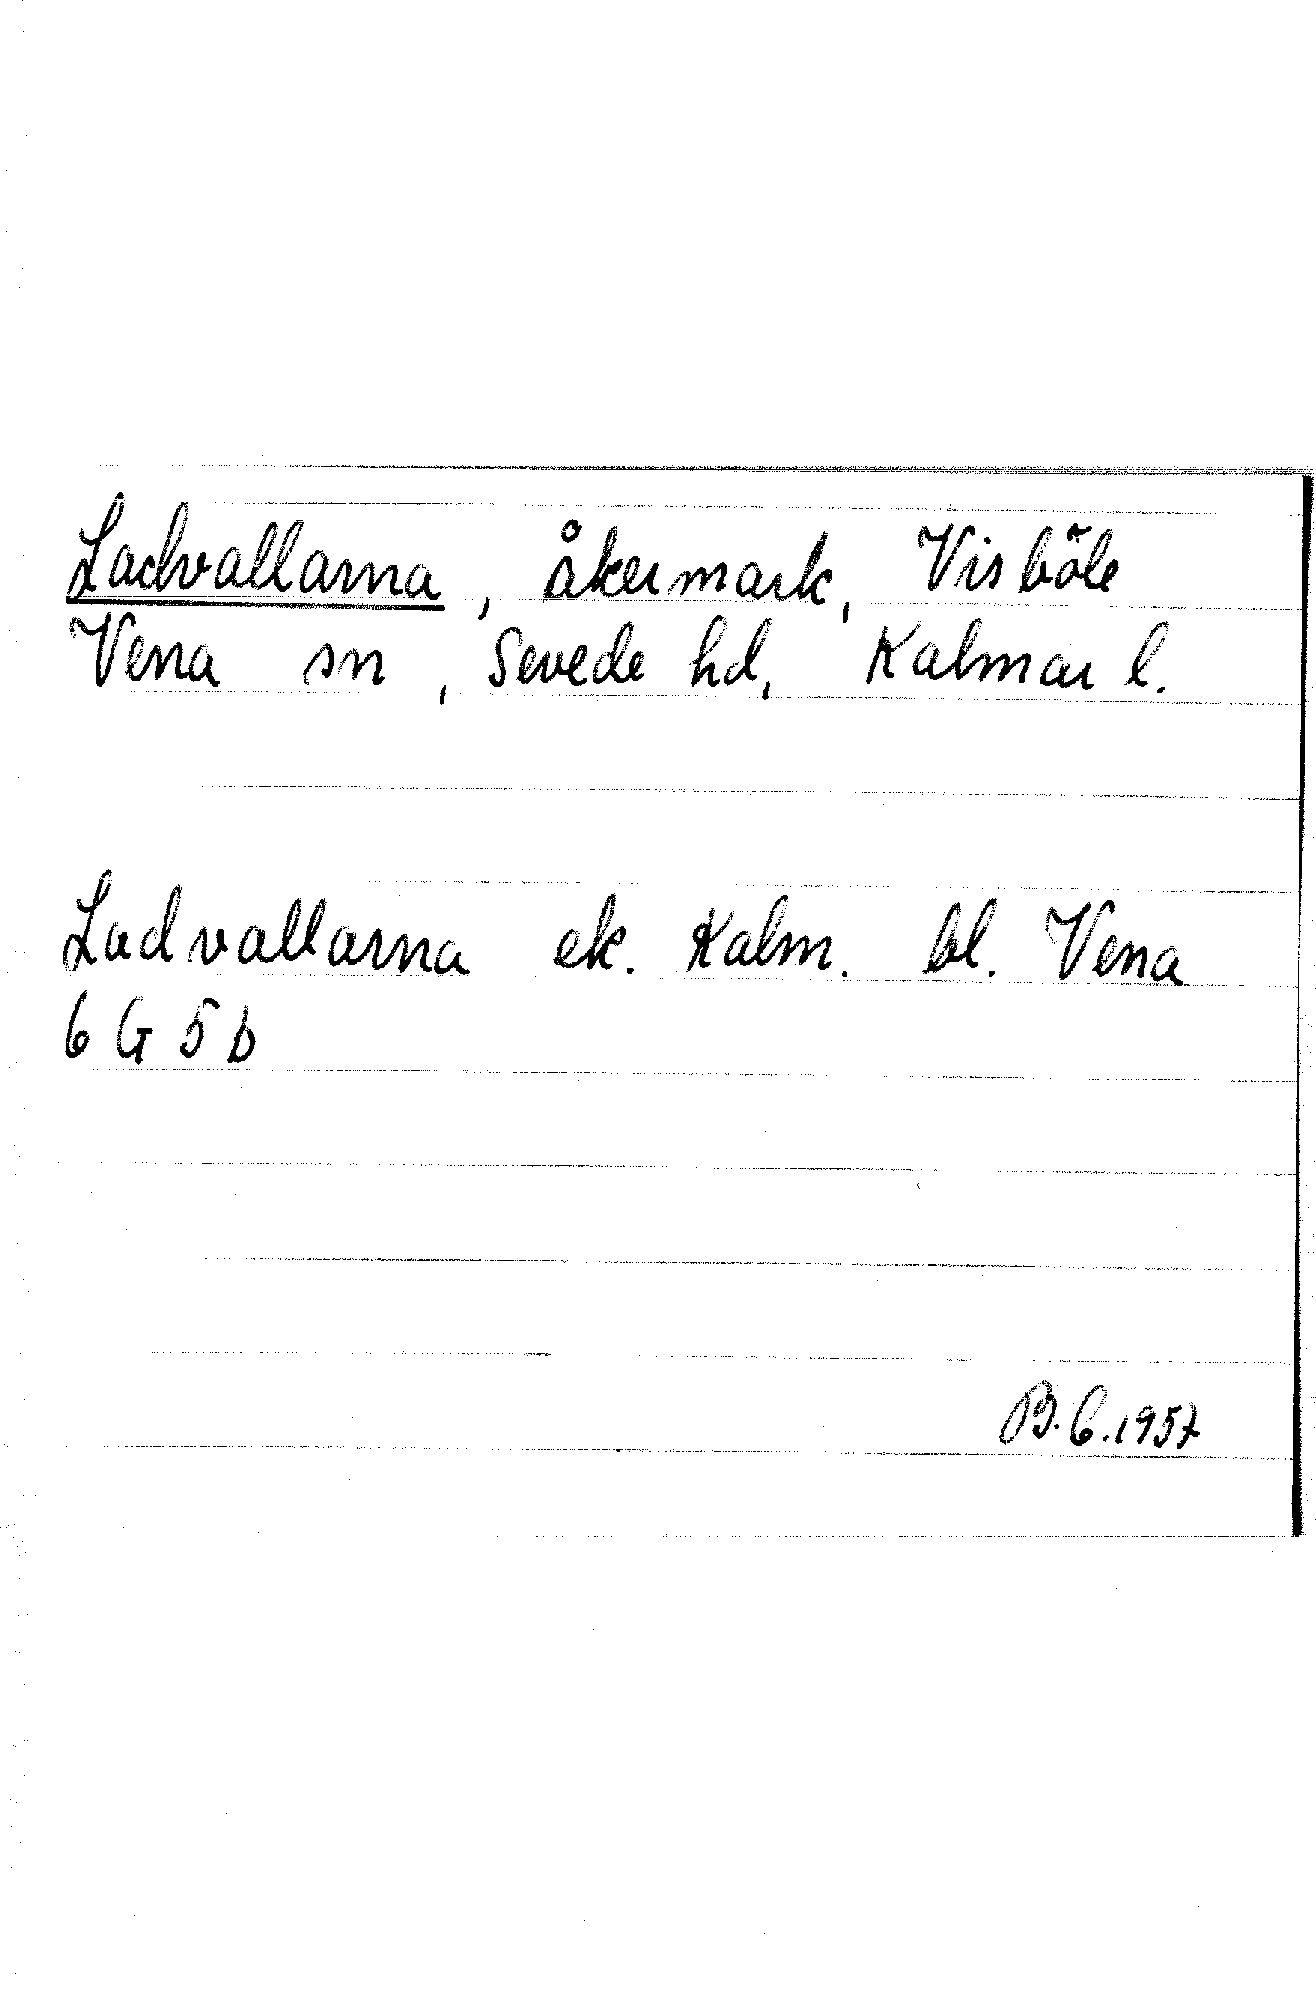 Ladvallarna, åkermark, Visböle
Vena sn, Sevede hd, Kalmar l.
Ladvallarna ek. Kalm. bl. Vena
6 G 5 b
B.6.1957